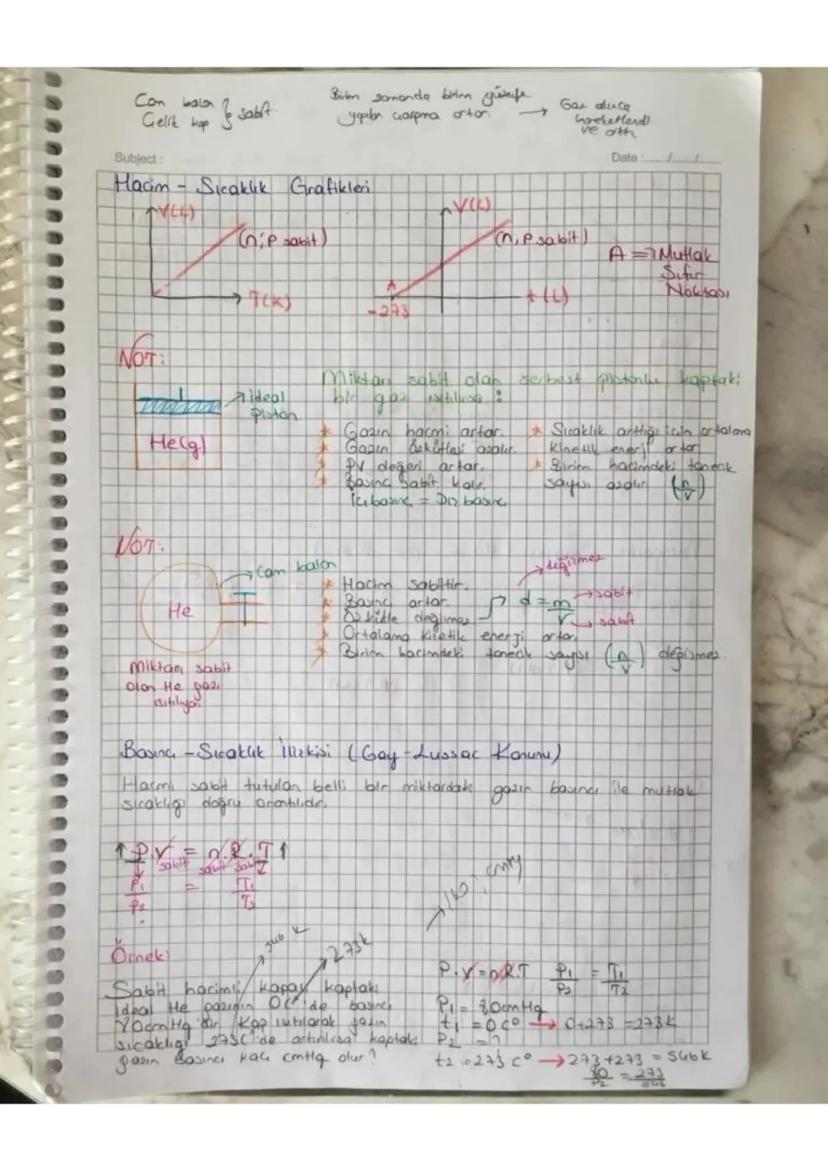 Cam balon } sabit
Çelik kap
Birim zamanda birim yüzeye
yapılan çarpma artar. →
Gaz
ve artn
Subject : Date : ..../..../....
Hacim - Sıcaklık Grafikleri
V(L) (n, P sabit) T(K)
V(L) (n, P sabit) A -273
A => Mutlak
Sıfır
Noktası
NOT:
ideal
piston
He(g)
Miktarı sabit olan serbest pistonlu kaptaki
bir gaz ısıtılırsa :
* Gazın hacmi artar.
* Gazın özkütlesi azalır.
* PV değeri artar.
* Basınç sabit kalır.
İç basınç = Dış basınç
* Sıcaklık arttığı için ortalama
kinetik enerji artar
* Birim hacimdeki tanecik
sayısı azalır (n/V)
NOT:
Cam balon
He
Miktarı sabit
olan He gazı
ısıtılıyor
* Hacim sabittir.
* Basınç artar.
* Özkütle değişmez
* Ortalama kinetik enerji artar.
* Birim hacimdeki tanecik sayısı (n/V) değişmez.
değişmez
d = m/V → sabit
→ sabit
Basınç - Sıcaklık İlişkisi (Gay-Lussac Kanunu)
Hacmi sabit tutulan belli bir miktardaki gazın basıncı ile mutlak
sıcaklığı doğru orantılıdır.
↑ P.V = n.R.T ↑
sabit sabit sabit
P1/P2 = T1/T2
Örnek:
546 K
273K
160 cmHg
Sabit hacimli kapalı kaptaki
ideal He gazının 0C° de basıncı
80cmHg dır. Kap ısıtılarak gazın
sıcaklığı 273C° de artırılırsa kaptaki
gazın basıncı kaç cmHg olur?
P.V = nR.T P1/P2 = T1/T2
P1 = 80cmHg
t1 = 0C° → 0+273 = 273K
P2 = ?
t2 = 273 C° → 273+273 = 546K
80/P2 = 273/546